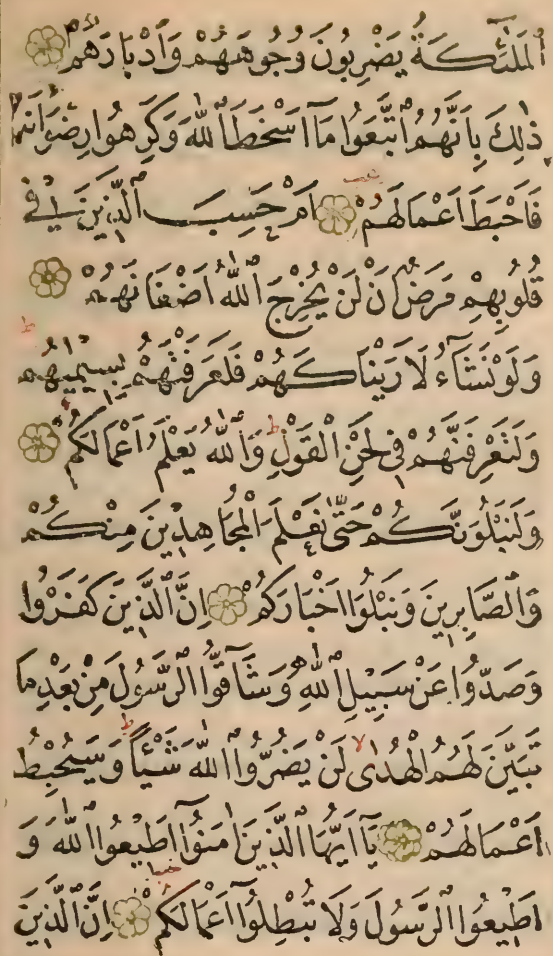 الْمَلٰٓئِكَةُ يَضْرِبُونَ وُجُوهَهُمْ وَاَدْبَارَهُمْ
ذٰلِكَ بِاَنَّهُمُ اتَّبَعُوا مَٓا اَسْخَطَ اللّٰهَ وَكَرِهُوا رِضْوَانَهُ
فَاَحْبَطَ اَعْمَالَهُمْ اَمْ حَسِبَ الَّذِينَ فِي
قُلُوبِهِمْ مَرَضٌ اَنْ لَنْ يُخْرِجَ اللّٰهُ اَضْغَانَهُمْ
وَلَوْ نَشَٓاءُ لَاَرَيْنَاكَهُمْ فَلَعَرَفْتَهُمْ بِسِيمٰيهُمْ
وَلَتَعْرِفَنَّهُمْ فِي لَحْنِ الْقَوْلِ وَاللّٰهُ يَعْلَمُ اَعْمَالَكُمْ
وَلَنَبْلُوَنَّكُمْ حَتّٰى نَعْلَمَ الْمُجَاهِدِينَ مِنْكُمْ
وَالصَّابِرِينَ وَنَبْلُوَا اَخْبَارَكُمْ اِنَّ الَّذِينَ كَفَرُوا
وَصَدُّوا عَنْ سَبِيلِ اللّٰهِ وَشَٓاقُّوا الرَّسُولَ مِنْ بَعْدِ مَا
تَبَيَّنَ لَهُمُ الْهُدٰى لَنْ يَضُرُّوا اللّٰهَ شَيْـًٔا وَسَيُحْبِطُ
اَعْمَالَهُمْ يَٓا اَيُّهَا الَّذِينَ اٰمَنُٓوا اَطِيعُوا اللّٰهَ وَ
اَطِيعُوا الرَّسُولَ وَلَا تُبْطِلُٓوا اَعْمَالَكُمْ اِنَّ الَّذِينَ